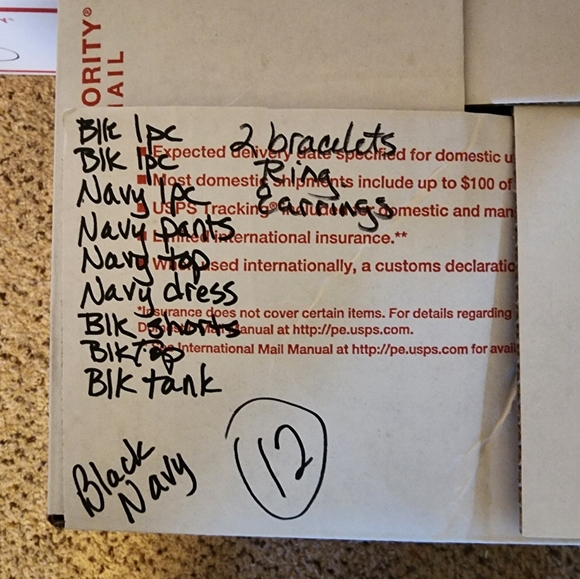 ORITY®
AIL
Blk 1pc
Blk 1pc
Navy 1pc
Navy pants
Navy top
Navy dress
Blk shorts
Blk Top
Blk tank
2 bracelets
Ring
Earrings
Expected delivery date specified for domestic u
Most domestic shipments include up to $100 of
USPS Tracking® included for domestic and man
Limited international insurance.**
When used internationally, a customs declaratio
*Insurance does not cover certain items. For details regarding
Domestic Mail Manual at http://pe.usps.com.
International Mail Manual at http://pe.usps.com for avail
Black
Navy
12